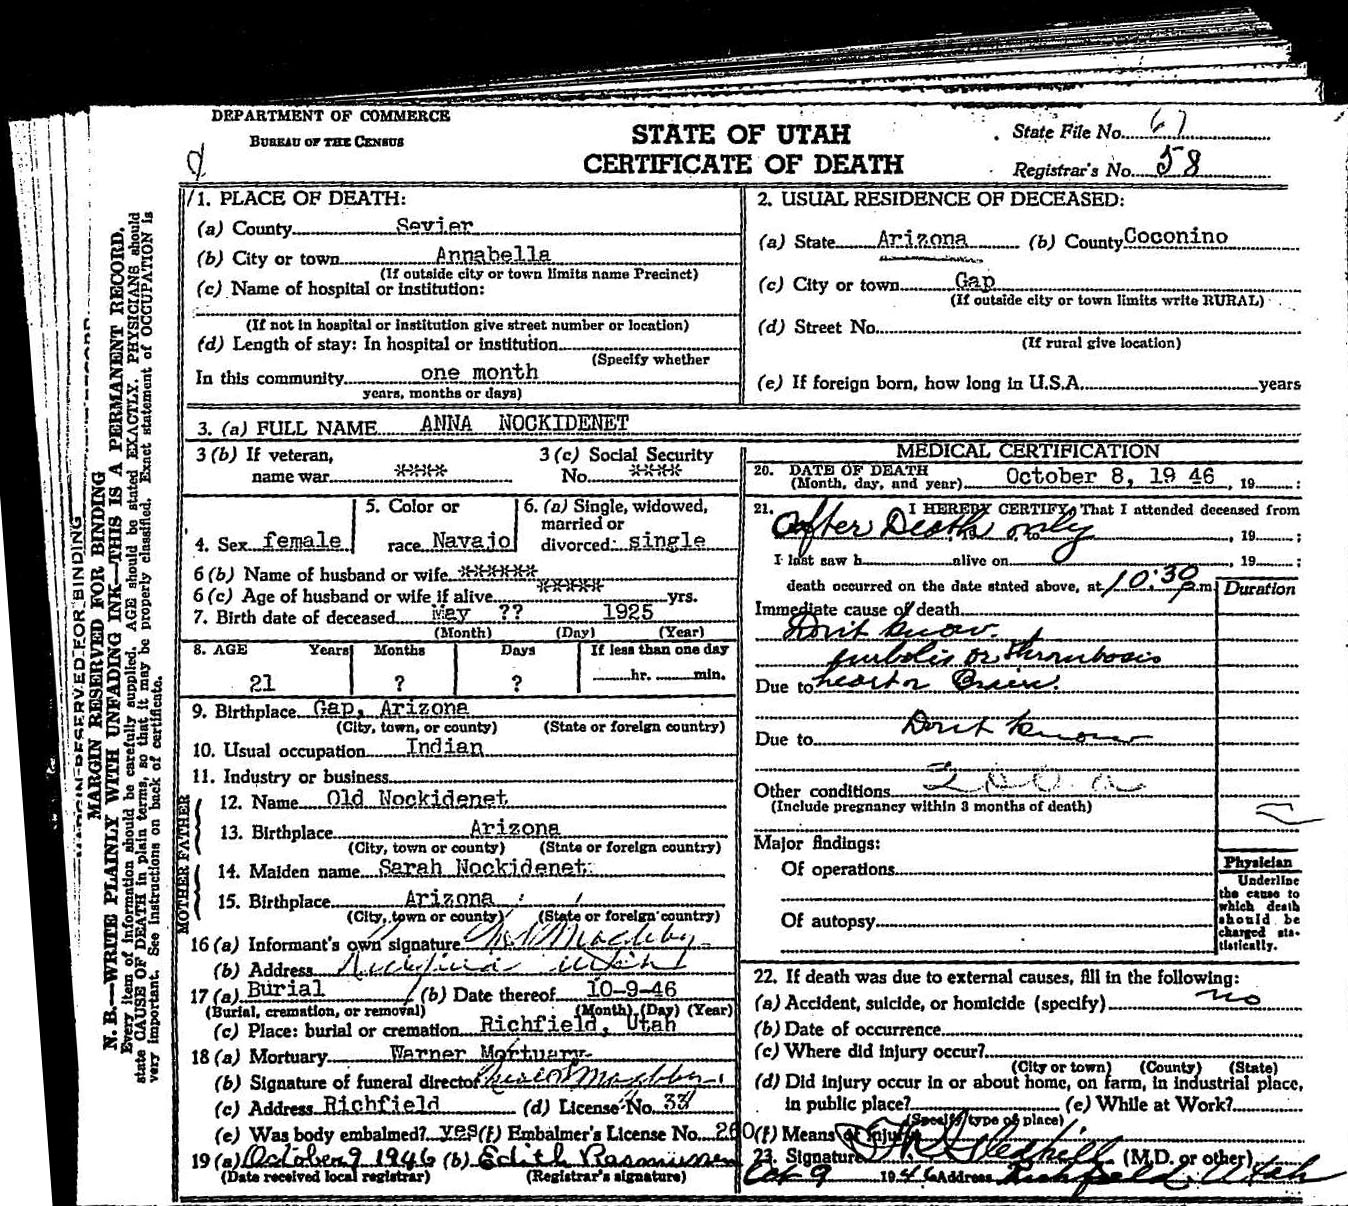 DEPARTMENT OF COMMERCE
BUREAU OF THE CENSUS
STATE OF UTAH
CERTIFICATE OF DEATH
State File No.
Registrar's No. 58
MARGIN RESERVED FOR BINDING
N. B.—WRITE PLAINLY WITH UNFADING INK—THIS IS A PERMANENT RECORD.
Every item of information should be carefully supplied. AGE should be stated EXACTLY. PHYSICIANS should
state CAUSE OF DEATH in plain terms, so that it may be properly classified. Exact statement of OCCUPATION is
very important. See instructions on back of certificate.
1. PLACE OF DEATH:
(a) County Sevier
(b) City or town Annabella
(If outside city or town limits name Precinct)
(c) Name of hospital or institution:
(If not in hospital or institution give street number or location)
(d) Length of stay: In hospital or institution
(Specify whether
In this community one month
years, months or days)
2. USUAL RESIDENCE OF DECEASED:
(a) State Arizona (b) County Coconino
(c) City or town Gap
(If outside city or town limits write RURAL)
(d) Street No.
(If rural give location)
(e) If foreign born, how long in U.S.A. years
3. (a) FULL NAME ANNA NOCKIDENET
3 (b) If veteran, 3 (c) Social Security
name war **** No. ****
5. Color or 6. (a) Single, widowed,
married or
4. Sex female race Navajo divorced: single
6 (b) Name of husband or wife ******
6 (c) Age of husband or wife if alive ***** yrs.
7. Birth date of deceased May ?? 1925
(Month) (Day) (Year)
8. AGE Years Months Days If less than one day
21 ? ? hr. min.
9. Birthplace Gap, Arizona
(City, town, or county) (State or foreign country)
10. Usual occupation Indian
11. Industry or business
FATHER
12. Name Old Nockidenet
13. Birthplace Arizona
(City, town or county) (State or foreign country)
MOTHER
14. Maiden name Sarah Nockidenet
15. Birthplace Arizona
(City, town or county) (State or foreign country)
16 (a) Informant's own signature
(b) Address Richfield Utah
17 (a) Burial (b) Date thereof 10-9-46
(Burial, cremation, or removal) (Month) (Day) (Year)
(c) Place: burial or cremation Richfield, Utah
18 (a) Mortuary Warner Mortuary
(b) Signature of funeral director
(c) Address Richfield (d) License No. 33
(e) Was body embalmed? yes (f) Embalmer's License No. 260
19 (a) October 9 1946 (b) Edith Rasmussen
(Date received local registrar) (Registrar's signature)
MEDICAL CERTIFICATION
20. DATE OF DEATH
(Month, day, and year) October 8, 19 46, 19 :
21. I HEREBY CERTIFY, That I attended deceased from
After Death only , 19 ;
I last saw h alive on , 19 ;
death occurred on the date stated above, at 10:30 P.m. Duration
Immediate cause of death
Don't know.
embolis or thrombosis
Due to heart or Brain.
Due to Don't know
Other conditions
(Include pregnancy within 3 months of death)
Major findings:
Of operations
Of autopsy
Physician
Underline
the cause to
which death
should be
charged sta-
tistically.
22. If death was due to external causes, fill in the following:
(a) Accident, suicide, or homicide (specify) no
(b) Date of occurrence
(c) Where did injury occur?
(City or town) (County) (State)
(d) Did injury occur in or about home, on farm, in industrial place,
in public place? (e) While at Work?
(Specify type of place)
(f) Means of injury
23. Signature (M.D. or other)
Oct 9 1946 Address Richfield, Utah